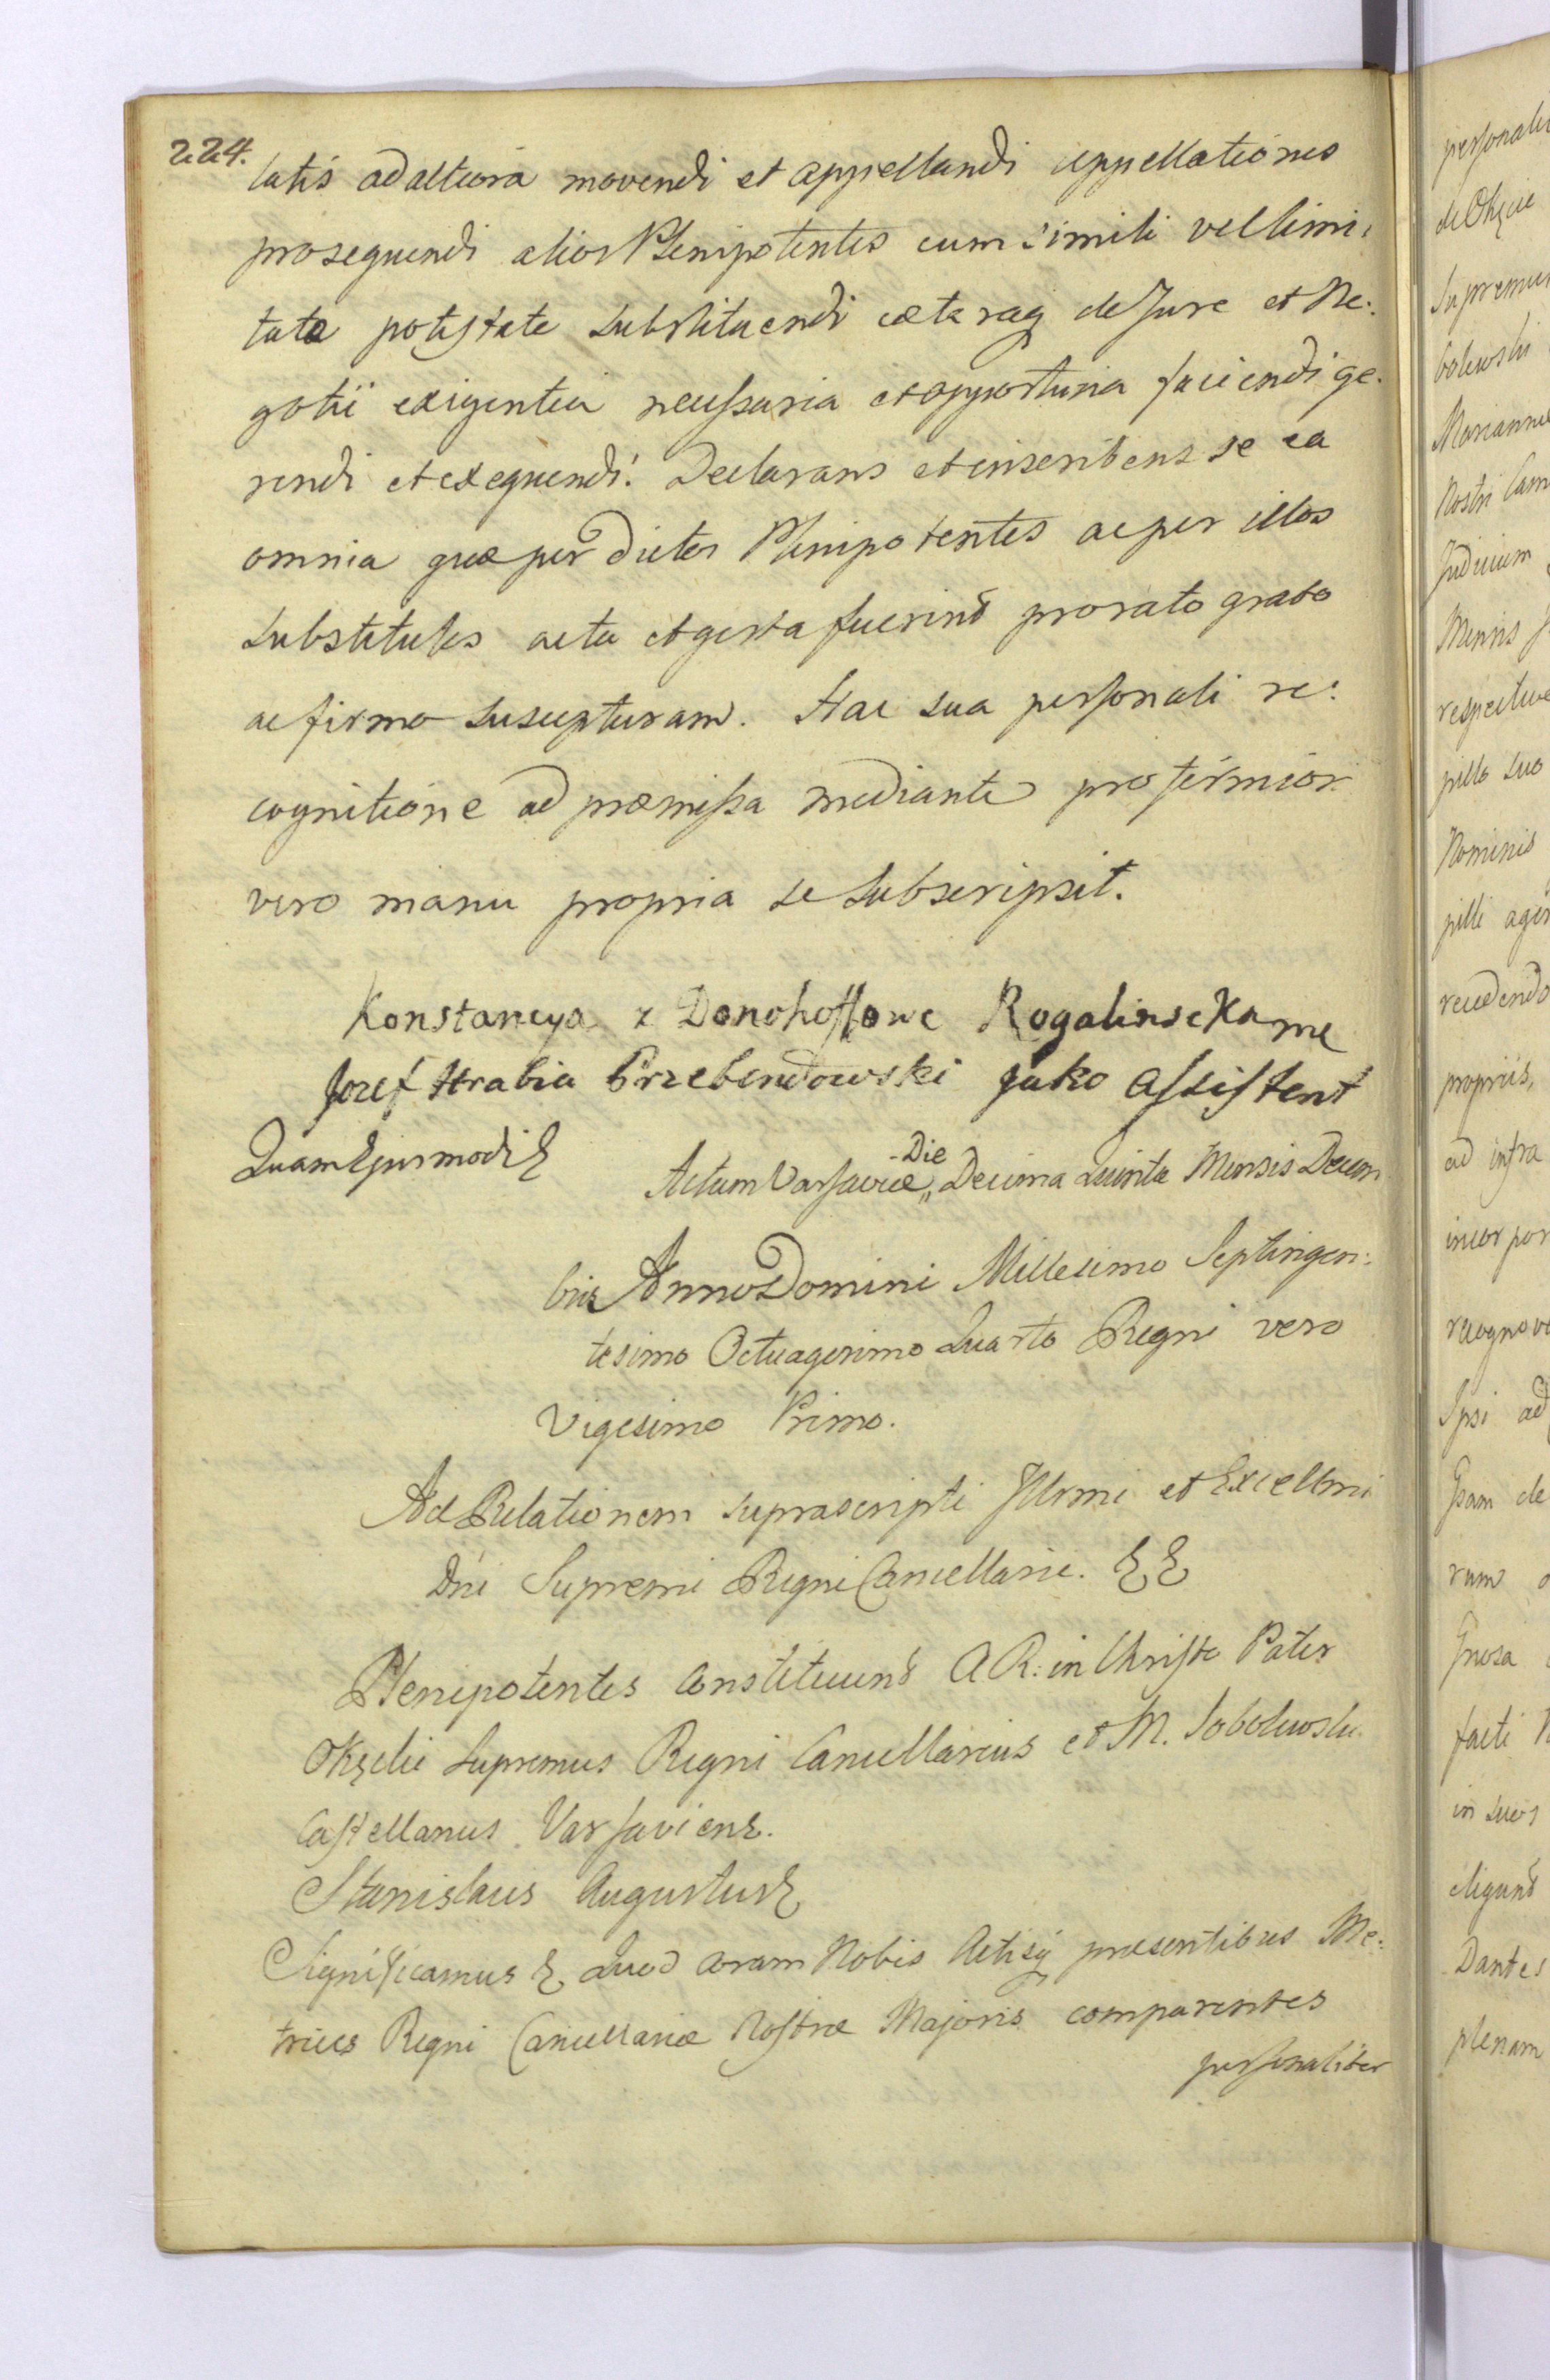 224.
latis ad altiora movendi et appellandi appellationes
prosequendi alios Plenipotentes cum simili vel limi:
tata potestate substituendi caeteraq de Jure et Ne:
gotii exigentia necessaria et opportuna faciendi ge:
rendi et exequendi. Declarans et inscribens se ea
omnia quae per dictos Plenipotentes ac per illos
substitutos acta et gesta fuerint pro rato grato
ac firmo suscepturam. Hac sua personali re:
cognitione ad praemissa mediante pro firmior
vero manu propria se subscripsit.
Konstancya z Donohoffow Rogalinscka mp
Jozef Hrabia Przebendowski jako Assistent
Quam Ejusmodi &
Actum Varsaviae Die Decima Quinta Mensis Decem
bris Anno Domini Millesimo Septingen:
tesimo Octuagesimo Quarto Regni vero
Vigesimo Primo.
Ad Relationem suprascripti Illrmi et Excellmi
Dni Supremi Regni Cancellarii. & &
Plenipotentes Constituunt A R: in Christo Pater
Okęcki Supremus Regni Cancellarius et M. Sobolewski
Castellanus Varsaviens.
Stanislaus Augustus &
Significamus & Quod coram Nobis Actisq praesentibus Me:
trices Regni Cancellariae Nostrae Majoris comparentes
personaliter
personalit
de Okęcie
Supremus
bolewski
Mariannae
Nostri Cam
Judicium
Mensis
respective
pillo suo
Nominis
pilli agen
recedendo
propriis,
ad infra
incorpor
recognov
Ipsi ad
Gsam de
rum
Gnosa
facti
in suos
eligunt
Dantes
plenam